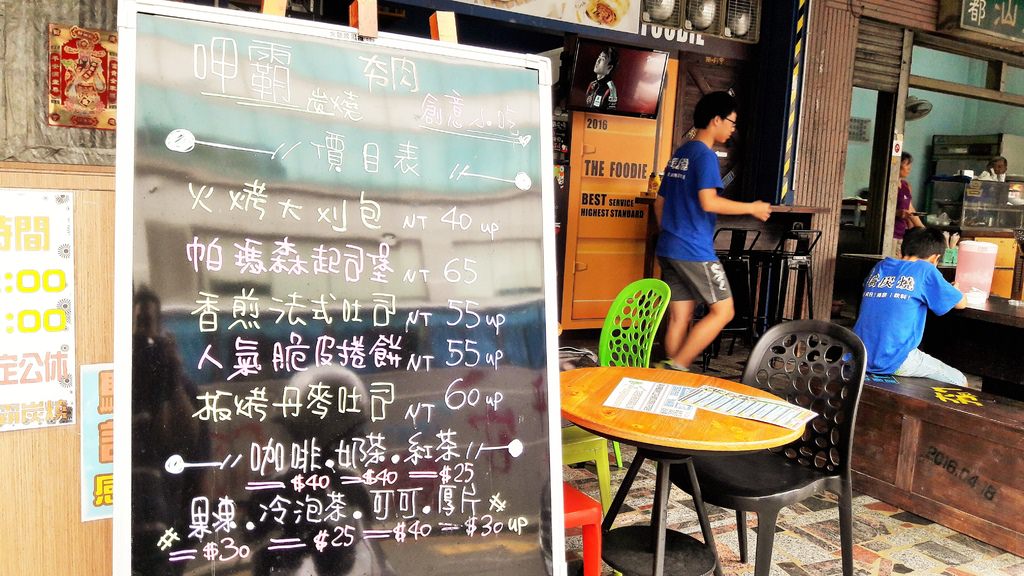 呷霸 夯肉
炭燒 創意小吃
價目表
火烤大刈包 NT 40 up
帕瑪森起司堡 NT 65
香煎法式吐司 NT 55 up
人氣脆皮捲餅 NT 55 up
板烤丹麥吐司 NT 60 up
咖啡.奶茶.紅茶
$40 $40 $25
果凍.冷泡茶.可可.厚片
$30 $25 $40 $30 up
時間
:00
:00
定公休
FOODIE
2016
THE FOODIE
BEST SERVICE
HIGHEST STANDARD
炭燒
2016.04.18
汕